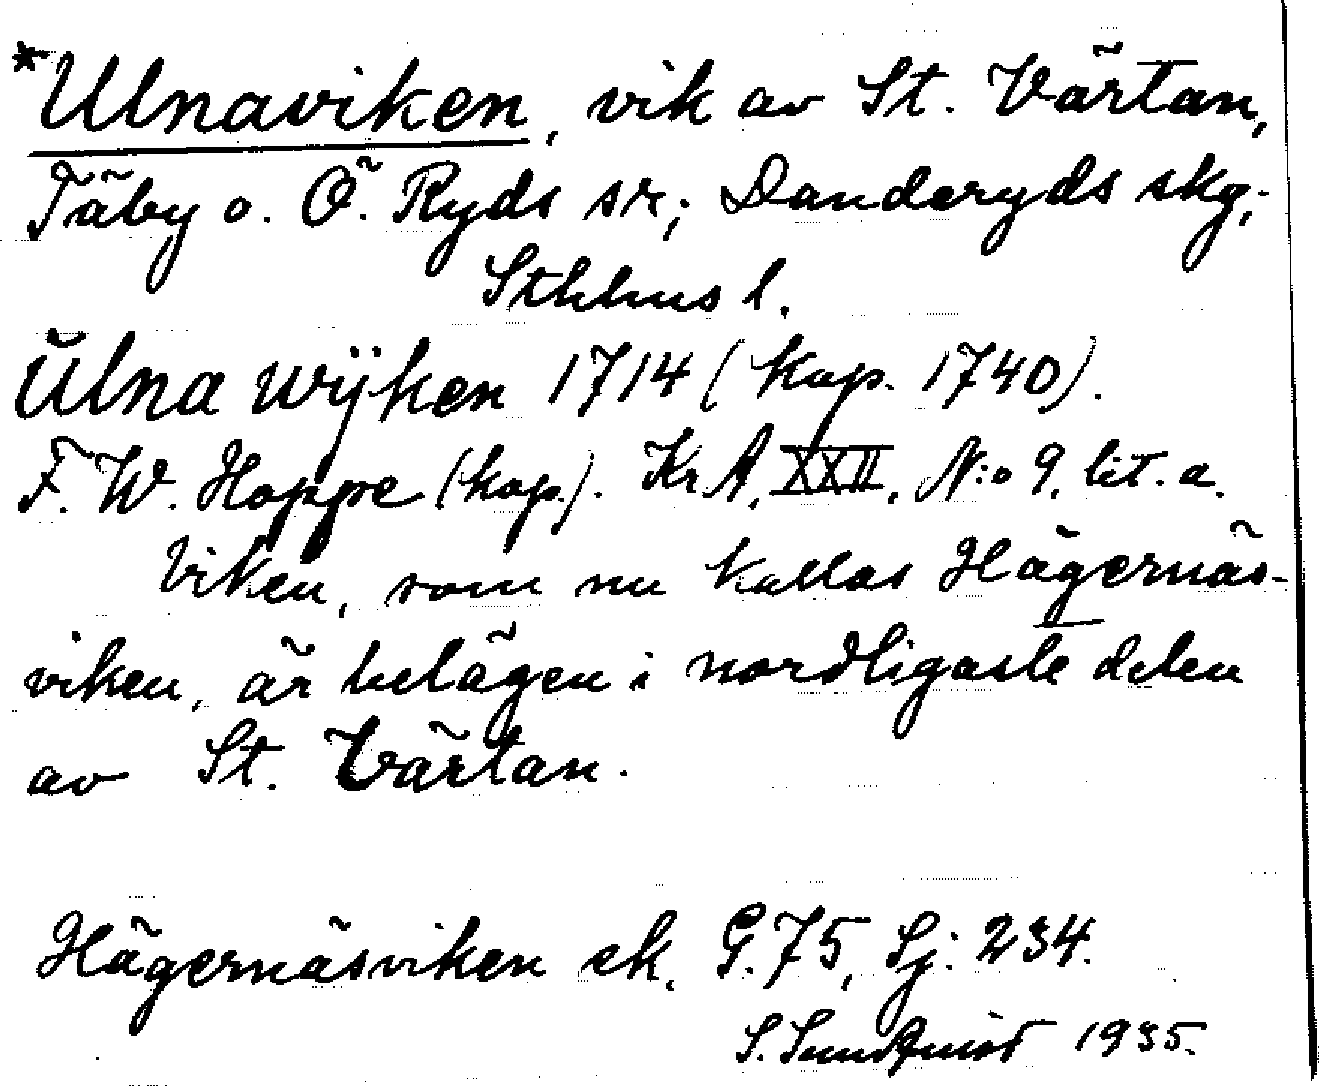 *Ulnaviken, vik av St. Värtan,
Täby o. Ö. Ryds sr; Danderyds skg;
Sthlms l.
Ŭlna wÿken 1714 (kop. 1740).
F. W. Hoppe (kop.). Kr A, XXII, N:o 9, lit. a.
Viken, som nu kallas Hägernäs-
viken, är belägen i nordligaste delen
av St. Värtan.
Hägernäsviken ek. G. 75, Sj: 234.
S. Sundqvist 1935.